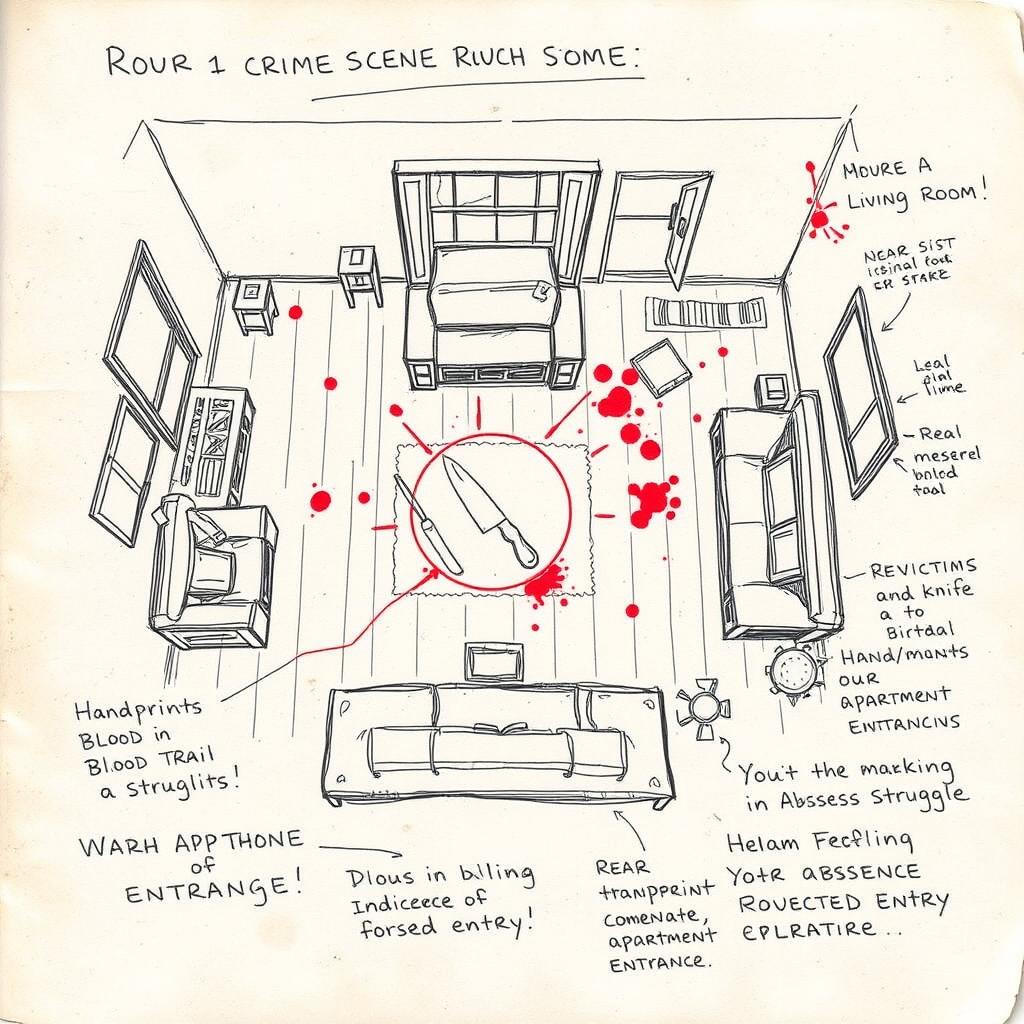 ROUR 1 CRIME SCENE RIUCH SOME:
MOURE A
LIVING ROOM!
NEAR SIST
ER STAKE
Leal
Real
meserel
REVICTIMS
and knife
a to
Birtdal
HAND/MANTS
OUR
APARTMENT
ENTTANCINS
Handprints
BLOOD in
BLOOD TRAIL
a struglits!
You't the macking
in Abssess Struggle
WARH APPTHONE
of
ENTRANGE!
Dlous in billing
Indiceece of
forsed entry!
REAR
tranpprint
COMENATE,
APARTMENT
ENTRANCE.
Helam Fecflling
YOtR ABSSENCE
ROVECTED ENTRY
EPLRATIRE...